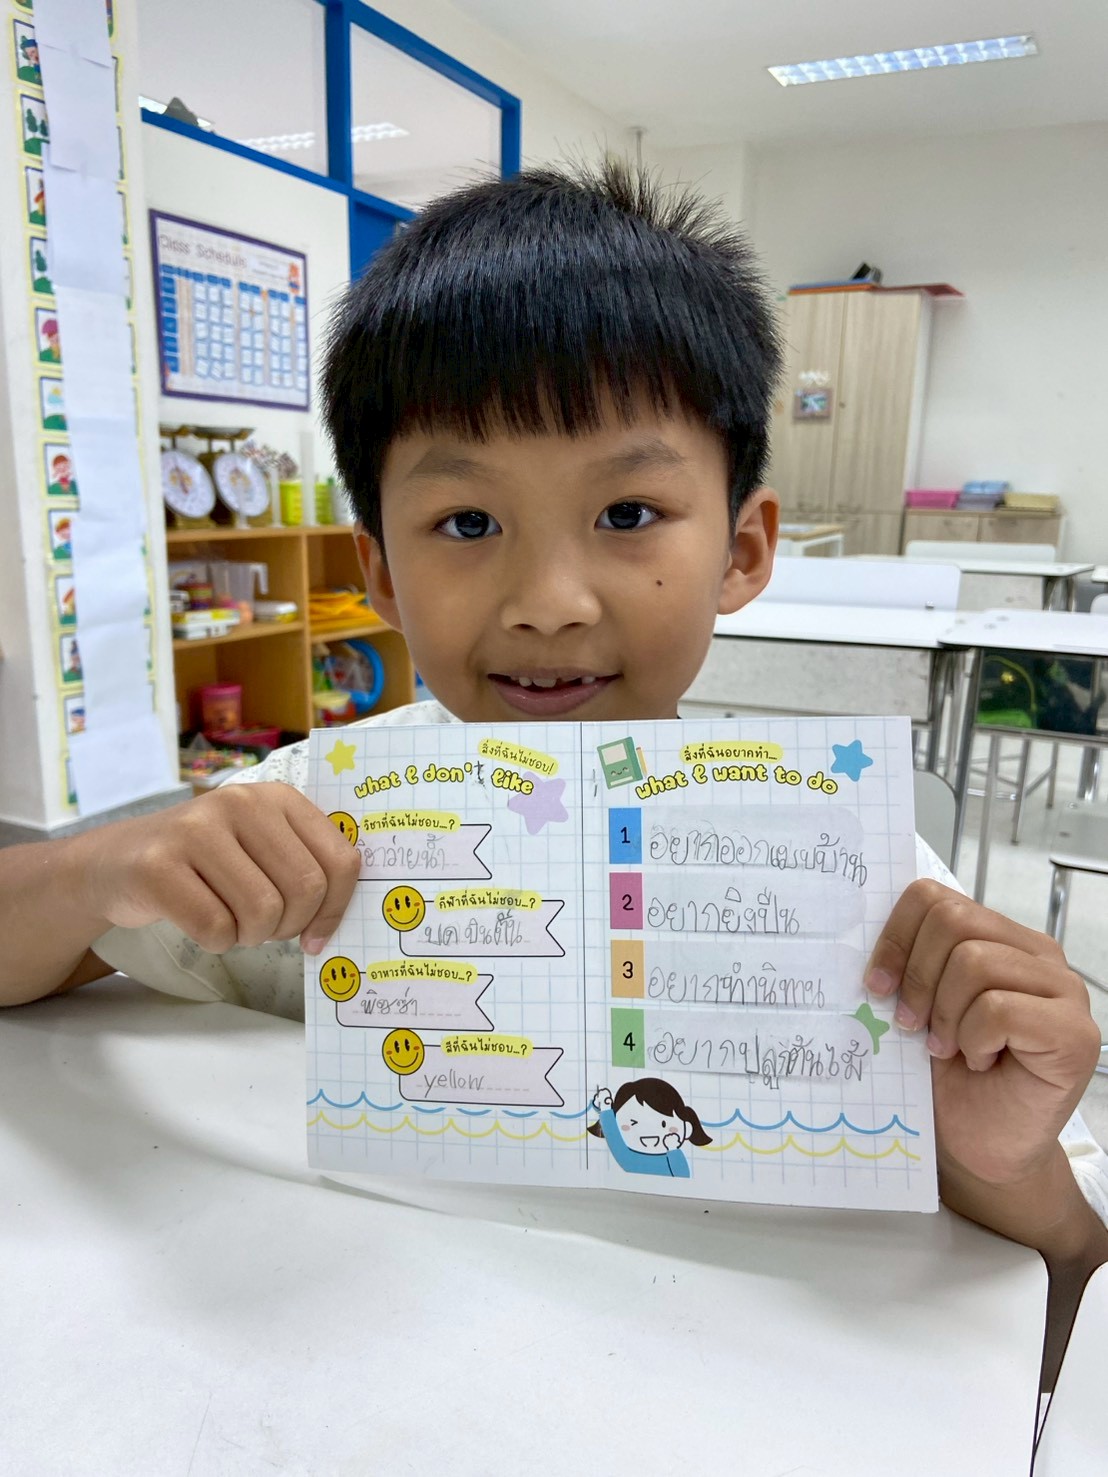 Class Schedule
สิ่งที่ฉันไม่ชอบ!
what I don't like
วิชาที่ฉันไม่ชอบ...?
วิชาว่ายน้ำ
กีฬาที่ฉันไม่ชอบ...?
บตบินตัน
อาหารที่ฉันไม่ชอบ...?
พิซซ่า
สีที่ฉันไม่ชอบ...?
yellow
สิ่งที่ฉันอยากทำ...
what I want to do
1 อยากออกแบบบ้าน
2 อยากยิงปืน
3 อยากทำนิทาน
4 อยากปลูกต้นไม้